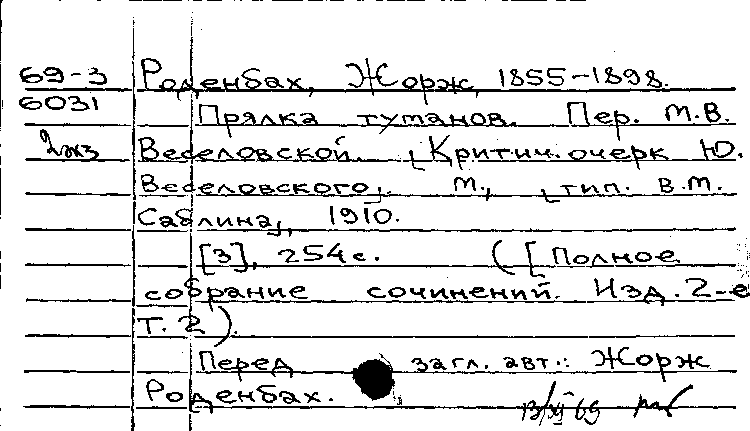 69-3 Роденбах, Жорж, 1855-1898.
6031 Прялка туманов. Пер. М.В.
2 экз Веселовской. [Критич. очерк Ю.
Веселовского]. М., [тип. В.М.
Саблина], 1910.
[3], 254 с. ([Полное
собрание сочинений. Изд. 2-е
Т. 2).
Перед загл. авт.: Жорж
Роденбах.
13/XI 69